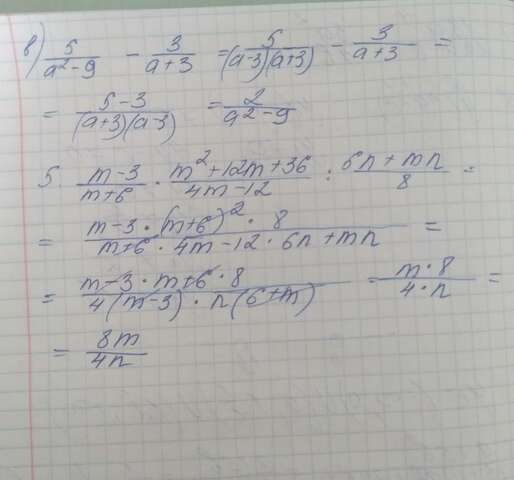 в) 5/(a²-9) - 3/(a+3) = 5/((a-3)(a+3)) - 3/(a+3) =
= (5-3)/((a+3)(a-3)) = 2/(a²-9)
5. (m-3)/(m+6) · (m²+12m+36)/(4m-12) : (6n+mn)/8 =
= (m-3·(m+6)²·8)/(m+6·4m-12·6n+mn) =
= (m-3·m+6·8)/(4(m-3)·n(6+m)) = (m·8)/(4·n) =
= 8m/4n